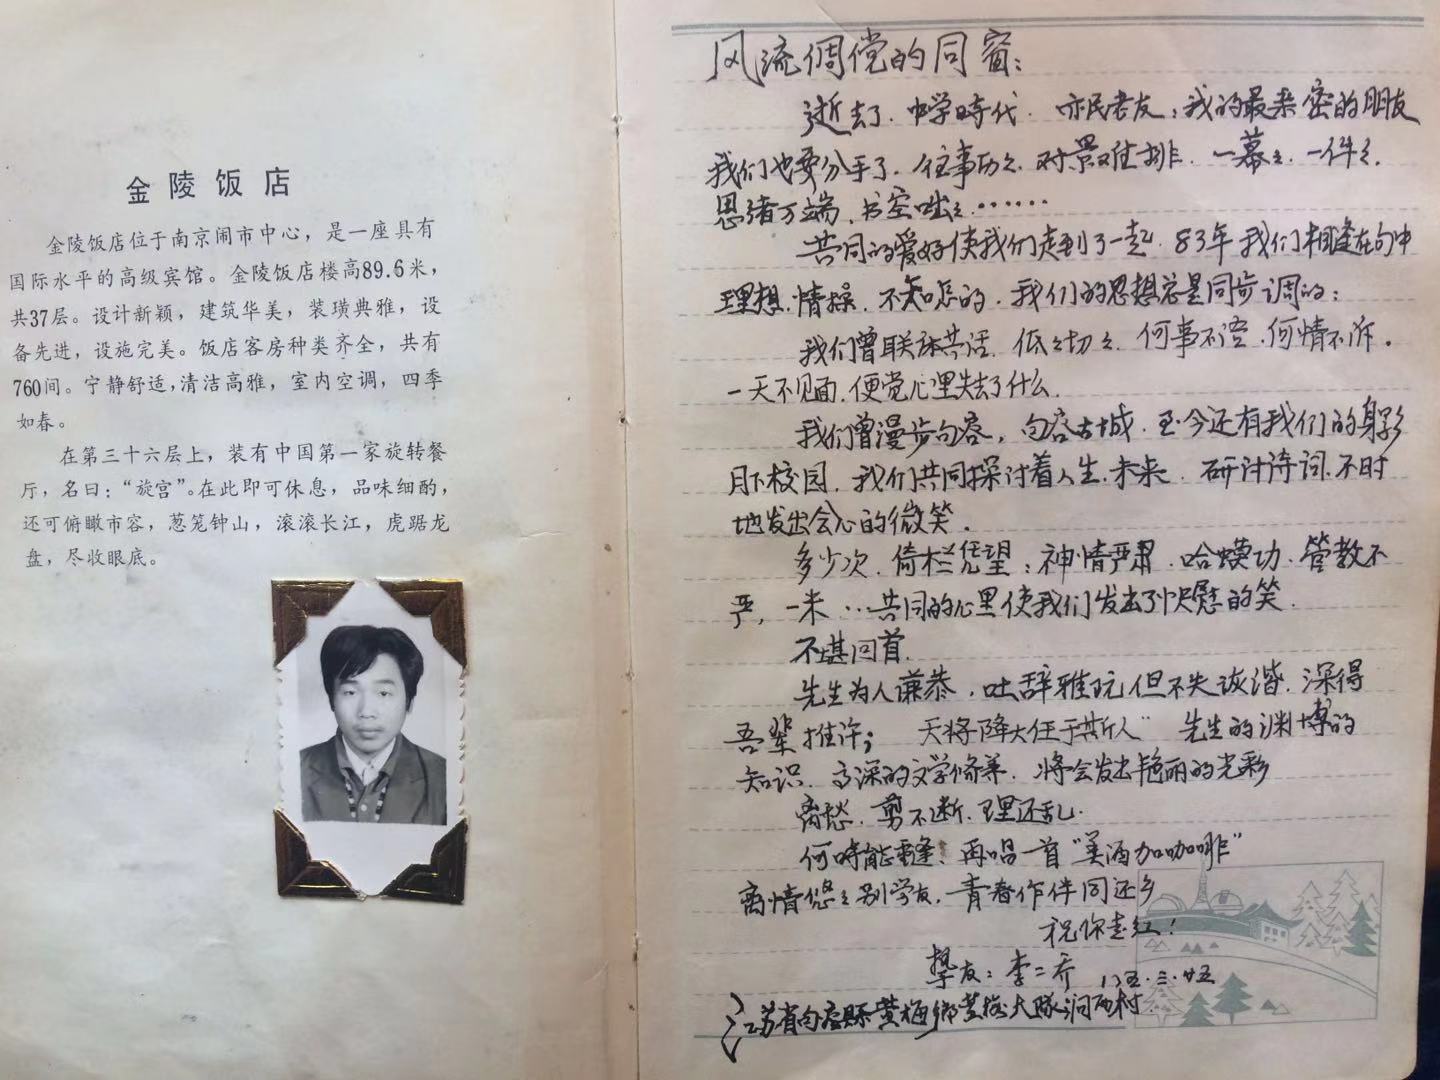 金陵饭店
金陵饭店位于南京闹市中心，是一座具有
国际水平的高级宾馆。金陵饭店楼高89.6米，
共37层。设计新颖，建筑华美，装璜典雅，设
备先进，设施完美。饭店客房种类齐全，共有
760间。宁静舒适，清洁高雅，室内空调，四季
如春。
在第三十六层上，装有中国第一家旋转餐
厅，名曰：“旋宫”。在此即可休息，品味细酌，
还可俯瞰市容，葱笼钟山，滚滚长江，虎踞龙
盘，尽收眼底。
风流倜傥的同窗：
逝去了．中学時代．亦民老友，我的最亲密的朋友
我们也要分手了．往事历之．对景难排．一幕之．一件之．
思绪万端．书空咄之……
共同的爱好使我们走到了一起．83年我们相逢在句中
理想．情操．不知怎的．我们的思想总是同步调的：
我们曾联床共话．低之切之．何事不语．何情不诉。
一天不见面．便觉心里失去了什么．
我们曾漫步句容，句容古城．至今还有我们的身影
月下校园．我们共同探讨着人生．未来．研讨诗词．不时
地发出会心的微笑。
多少次．倚栏凭望：神情严肃．哈蟆功．管教不
严，一米…共同的心里使我们发出了快慰的笑．
不堪回首．
先生为人谦恭．吐辞雅玩但不失诙谐．深得
吾辈推许； 天将降大任于斯人” 先生的渊博的
知识．高深的文学修养．将会发出艳丽的光彩
离愁．剪不断．理还乱．
何時能重逢：再唱一首“美酒加咖啡”
离情悠之别学友．青春作伴同还乡
祝你走红！
挚友：李二乔 八五．三．廿五
江苏省句容縣黄梅鄉黄梅大队洞西村